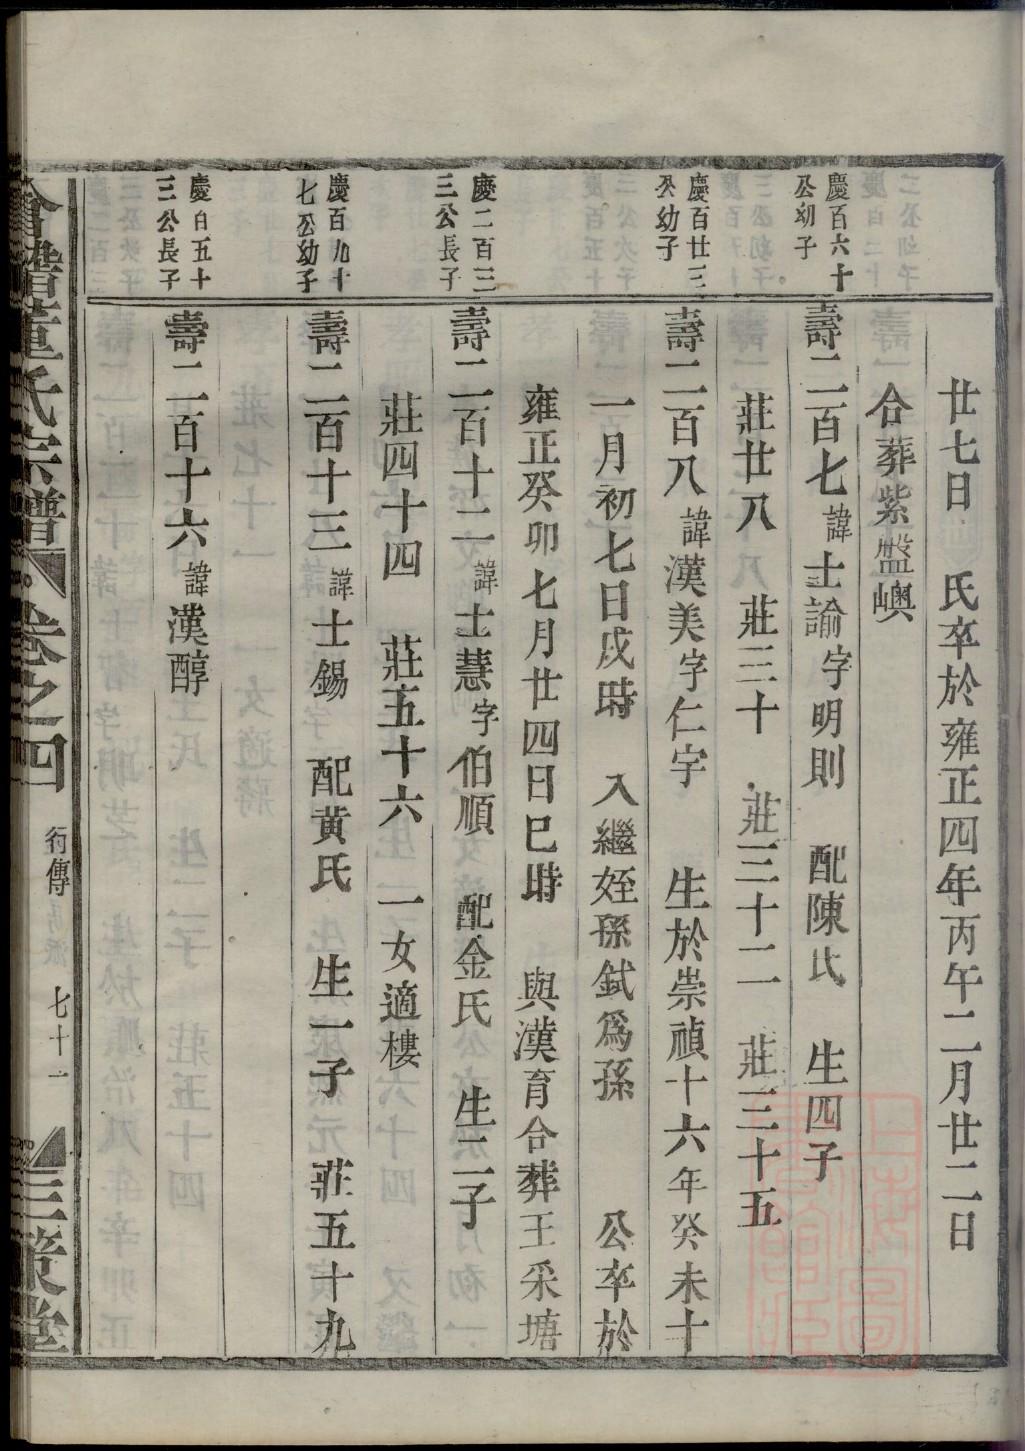 廿七日　氏卒於雍正四年丙午二月廿二日
合葬紫盤嶼
慶百六十
公幼子
壽二百七諱士諭字明則　配陳氏　生四子
莊廿八　莊三十　莊三十二　莊三十五
慶百廿三
公幼子
壽二百八諱漢美字仁宇　生於崇禎十六年癸未十
一月初七日戌時　入繼姪孫鉽爲孫　公卒於
雍正癸卯七月廿四日巳時　與漢育合葬王采塘
慶二百三
三公長子
壽二百十二諱士慧字伯順　配金氏　生二子
莊四十四　莊五十六　一女適樓
慶百九十
七公幼子
壽二百十三諱士錫　配黄氏　生一子　莊五十九
慶百五十
三公長子
壽二百十六諱漢醇
會稽董氏宗譜　卷之四　行傳　七十一　三策堂